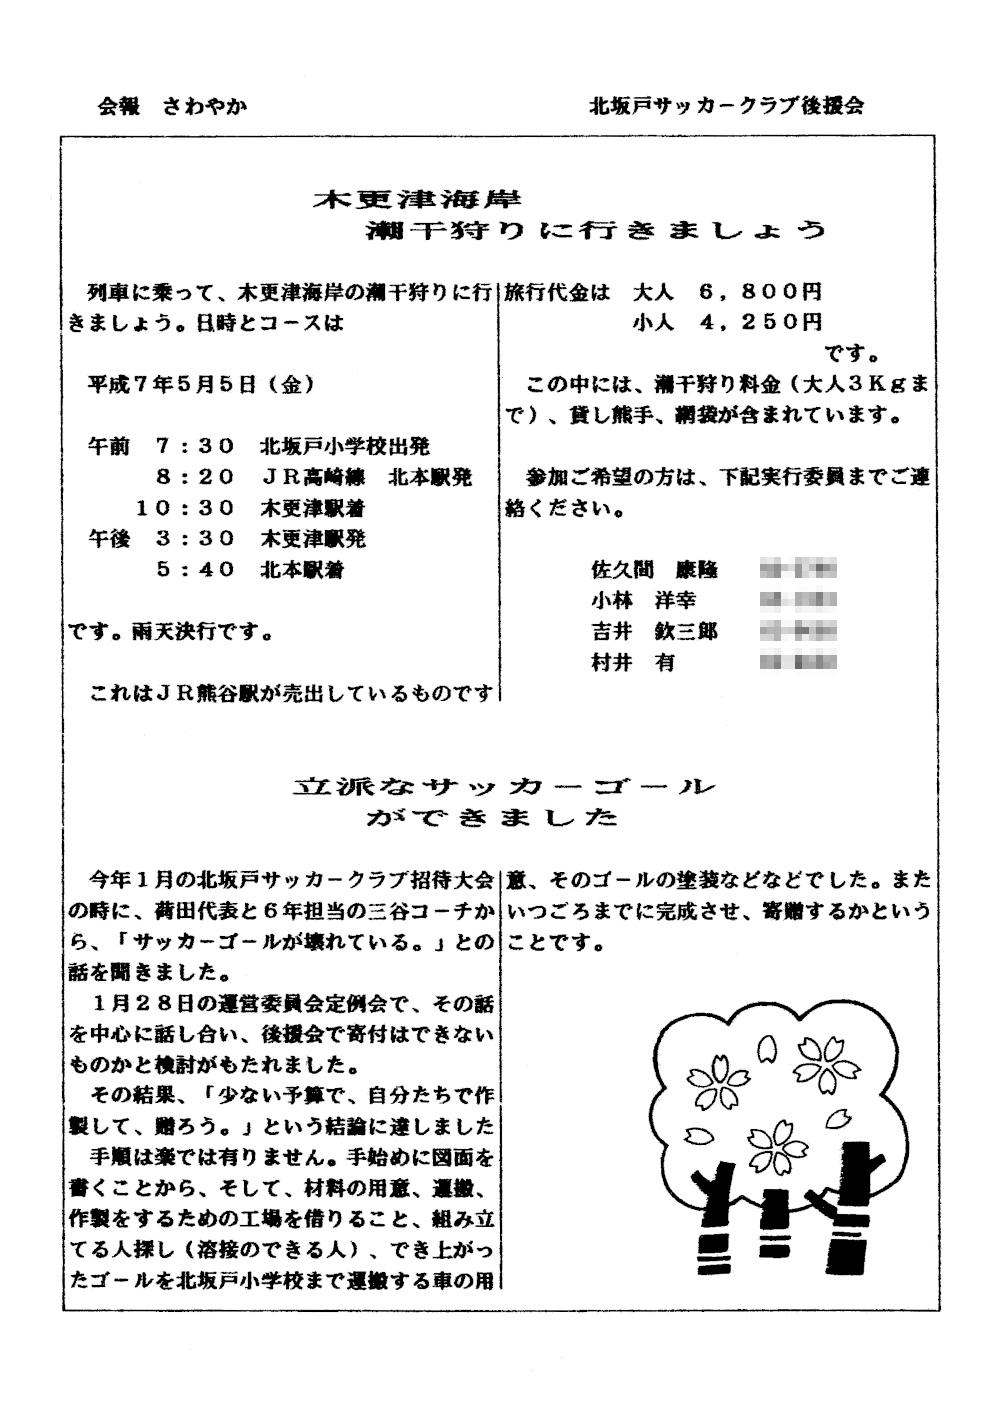 会報　さわやか
北坂戸サッカークラブ後援会
木更津海岸
潮干狩りに行きましょう
列車に乗って、木更津海岸の潮干狩りに行
きましょう。日時とコースは
平成７年５月５日（金）
午前　７：３０　北坂戸小学校出発
８：２０　ＪＲ高崎線　北本駅発
１０：３０　木更津駅着
午後　３：３０　木更津駅発
５：４０　北本駅着
です。雨天決行です。
これはＪＲ熊谷駅が売出しているものです
旅行代金は　大人　６，８００円
小人　４，２５０円
です。
この中には、潮干狩り料金（大人３Ｋｇま
で）、貸し熊手、網袋が含まれています。
参加ご希望の方は、下記実行委員までご連
絡ください。
佐久間　康隆
小林　洋幸
吉井　欽三郎
村井　有
立派なサッカーゴール
ができました
今年１月の北坂戸サッカークラブ招待大会
の時に、荷田代表と６年担当の三谷コーチか
ら、「サッカーゴールが壊れている。」との
話を聞きました。
１月２８日の運営委員会定例会で、その話
を中心に話し合い、後援会で寄付はできない
ものかと検討がもたれました。
その結果、「少ない予算で、自分たちで作
製して、贈ろう。」という結論に達しました
手順は楽では有りません。手始めに図面を
書くことから、そして、材料の用意、運搬、
作製をするための工場を借りること、組み立
てる人探し（溶接のできる人）、でき上がっ
たゴールを北坂戸小学校まで運搬する車の用
意、そのゴールの塗装などなどでした。また
いつごろまでに完成させ、寄贈するかという
ことです。